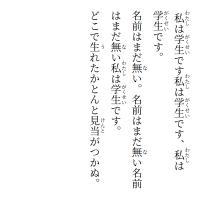 私は学生です私は学生です、私は
学生です。
名前はまだ無い。名前はまだ無い名前
はまだ無い私は学生です。
どこで生れたかとんと見当がつかぬ。